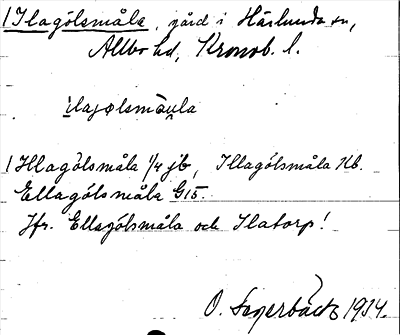 / Ilagölsmåla, gård i Härlunda sn,
Allbo hd, Kronob. l.
ılagølsmåula
/ Illagölsmåla 1/4 jb, Illagölsmåla Hb.
Ellagölsmåla G15.
Jfr. Ellagölsmåla och Ilatorp!
O. 1914.